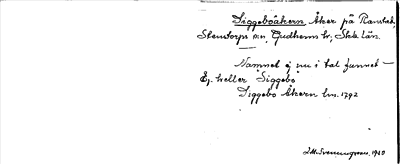 Siggeboåkern, Åker på Ranstad,
Stenstorps sn, Gudhems hd, Skb. län.
Namnet ej nu i tal funnet —
Ej heller "Siggebo"
Siggebo Åkern lm. 1792
J.M. Svenningsson, 1920